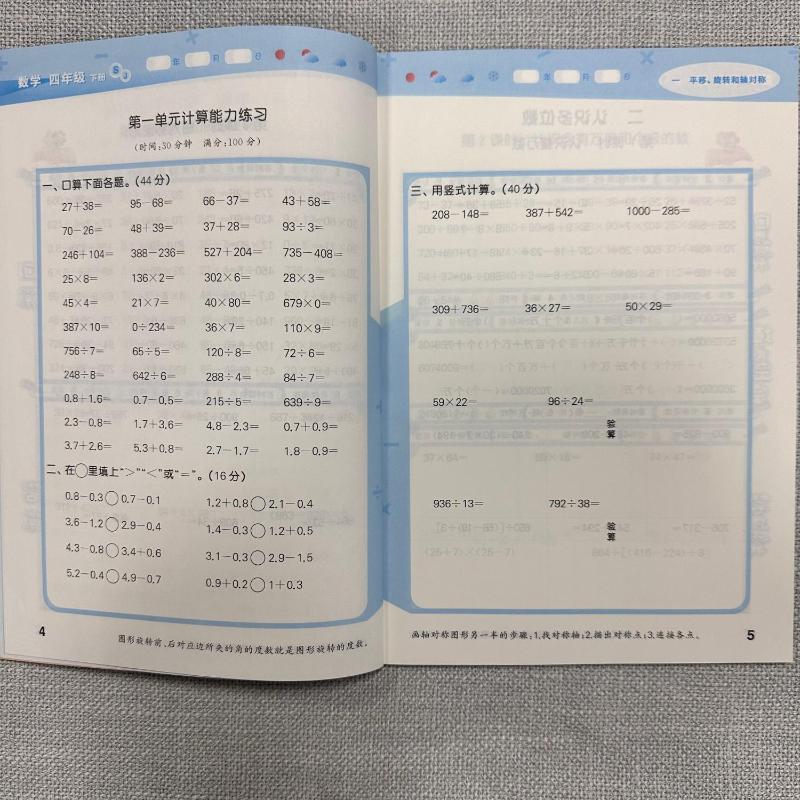 数学 四年级 下册 SJ
年 月 日
第一单元计算能力练习
(时间:30分钟 满分:100分)
一、口算下面各题。(44分)
27+38= 95-68= 66-37= 43+58=
70-26= 48+39= 37+28= 93÷3=
246+104= 388-236= 527+204= 735-408=
25×8= 136×2= 302×6= 28×3=
45×4= 21×7= 40×80= 679×0=
387×10= 0÷234= 36×7= 110×9=
756÷7= 65÷5= 120÷8= 72÷6=
248÷8= 642÷6= 288÷4= 84÷7=
0.8+1.6= 0.7-0.5= 215÷5= 639÷9=
2.3-0.8= 1.7+3.6= 4.8-2.3= 0.7+0.9=
3.7+2.6= 5.3+0.8= 2.7-1.7= 1.8-0.9=
二、在○里填上“>”“<”或“=”。(16分)
0.8-0.3○0.7-0.1 1.2+0.8○2.1-0.4
3.6-1.2○2.9-0.4 1.4-0.3○1.2+0.5
4.3-0.8○3.4+0.6 3.1-0.3○2.9-1.5
5.2-0.4○4.9-0.7 0.9+0.2○1+0.3
4
图形旋转前、后对应边所夹的角的度数就是图形旋转的度数。
年 月 日
一 平移、旋转和轴对称
三、用竖式计算。(40分)
208-148= 387+542= 1000-285=
309+736= 36×27= 50×29=
59×22= 96÷24=
验算
936÷13= 792÷38=
验算
画轴对称图形另一半的步骤:1.找对称轴;2.描出对称点;3.连接各点。
5